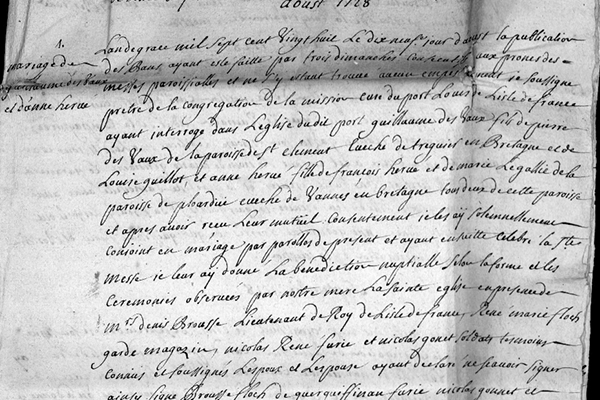 aoust 1728
1.
mariage de
guillaume des Vaux
et d'anne herve
Lan de grace mil sept cent vingt huit Le dix neufe jour d'aoust la publication
des Bans ayant esté faitte par trois dimanches consecutifs aux prones des
messes paroissialles et ne s'y estant trouvé aucun empeschement ie soussigné
prêtre de la congregation de la mission curé du port Louis de Lisle de france
ayant interrogé dans L'eglise dudit port guillaume des Vaux fils de pierre
des Vaux de la paroisse de st clement Eveché de treguier en Bretagne et de
Louise guillot, et anne herve fille de françois herve et de marie Le gallic de la
paroisse de eveché de Vannes en bretagne tou deux de cette paroisse
et apres avoir receu Leur mutuel consentement ie les ay solemnellement
conjoint en mariage par parolles de present et ayant ensuitte celebré la Ste
messe ie leur ay donné La benediction nuptialle selon la forme et les
ceremonies observees par nostre mere La sainte eglise en presence de
mrs denis Brousse Lieutenant de Roy de Lisle de france, René marie floch
garde magazin, nicolas René furie et nicolas gonet soldats tesmoins
connus et soussignés Lespoux et Lespouse ayant declaré ne scavoir signer
ainsy signé Brousse floch de furie nicolas gonnet et